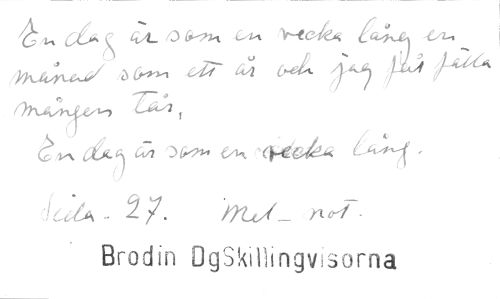 En dag är som en vecka lång en
månad som ett år och jag får fälla
mången tår,
En dag är som en vecka lång.
Sida. 27. Mel_ not.
Brodin DgSkillingvisorna